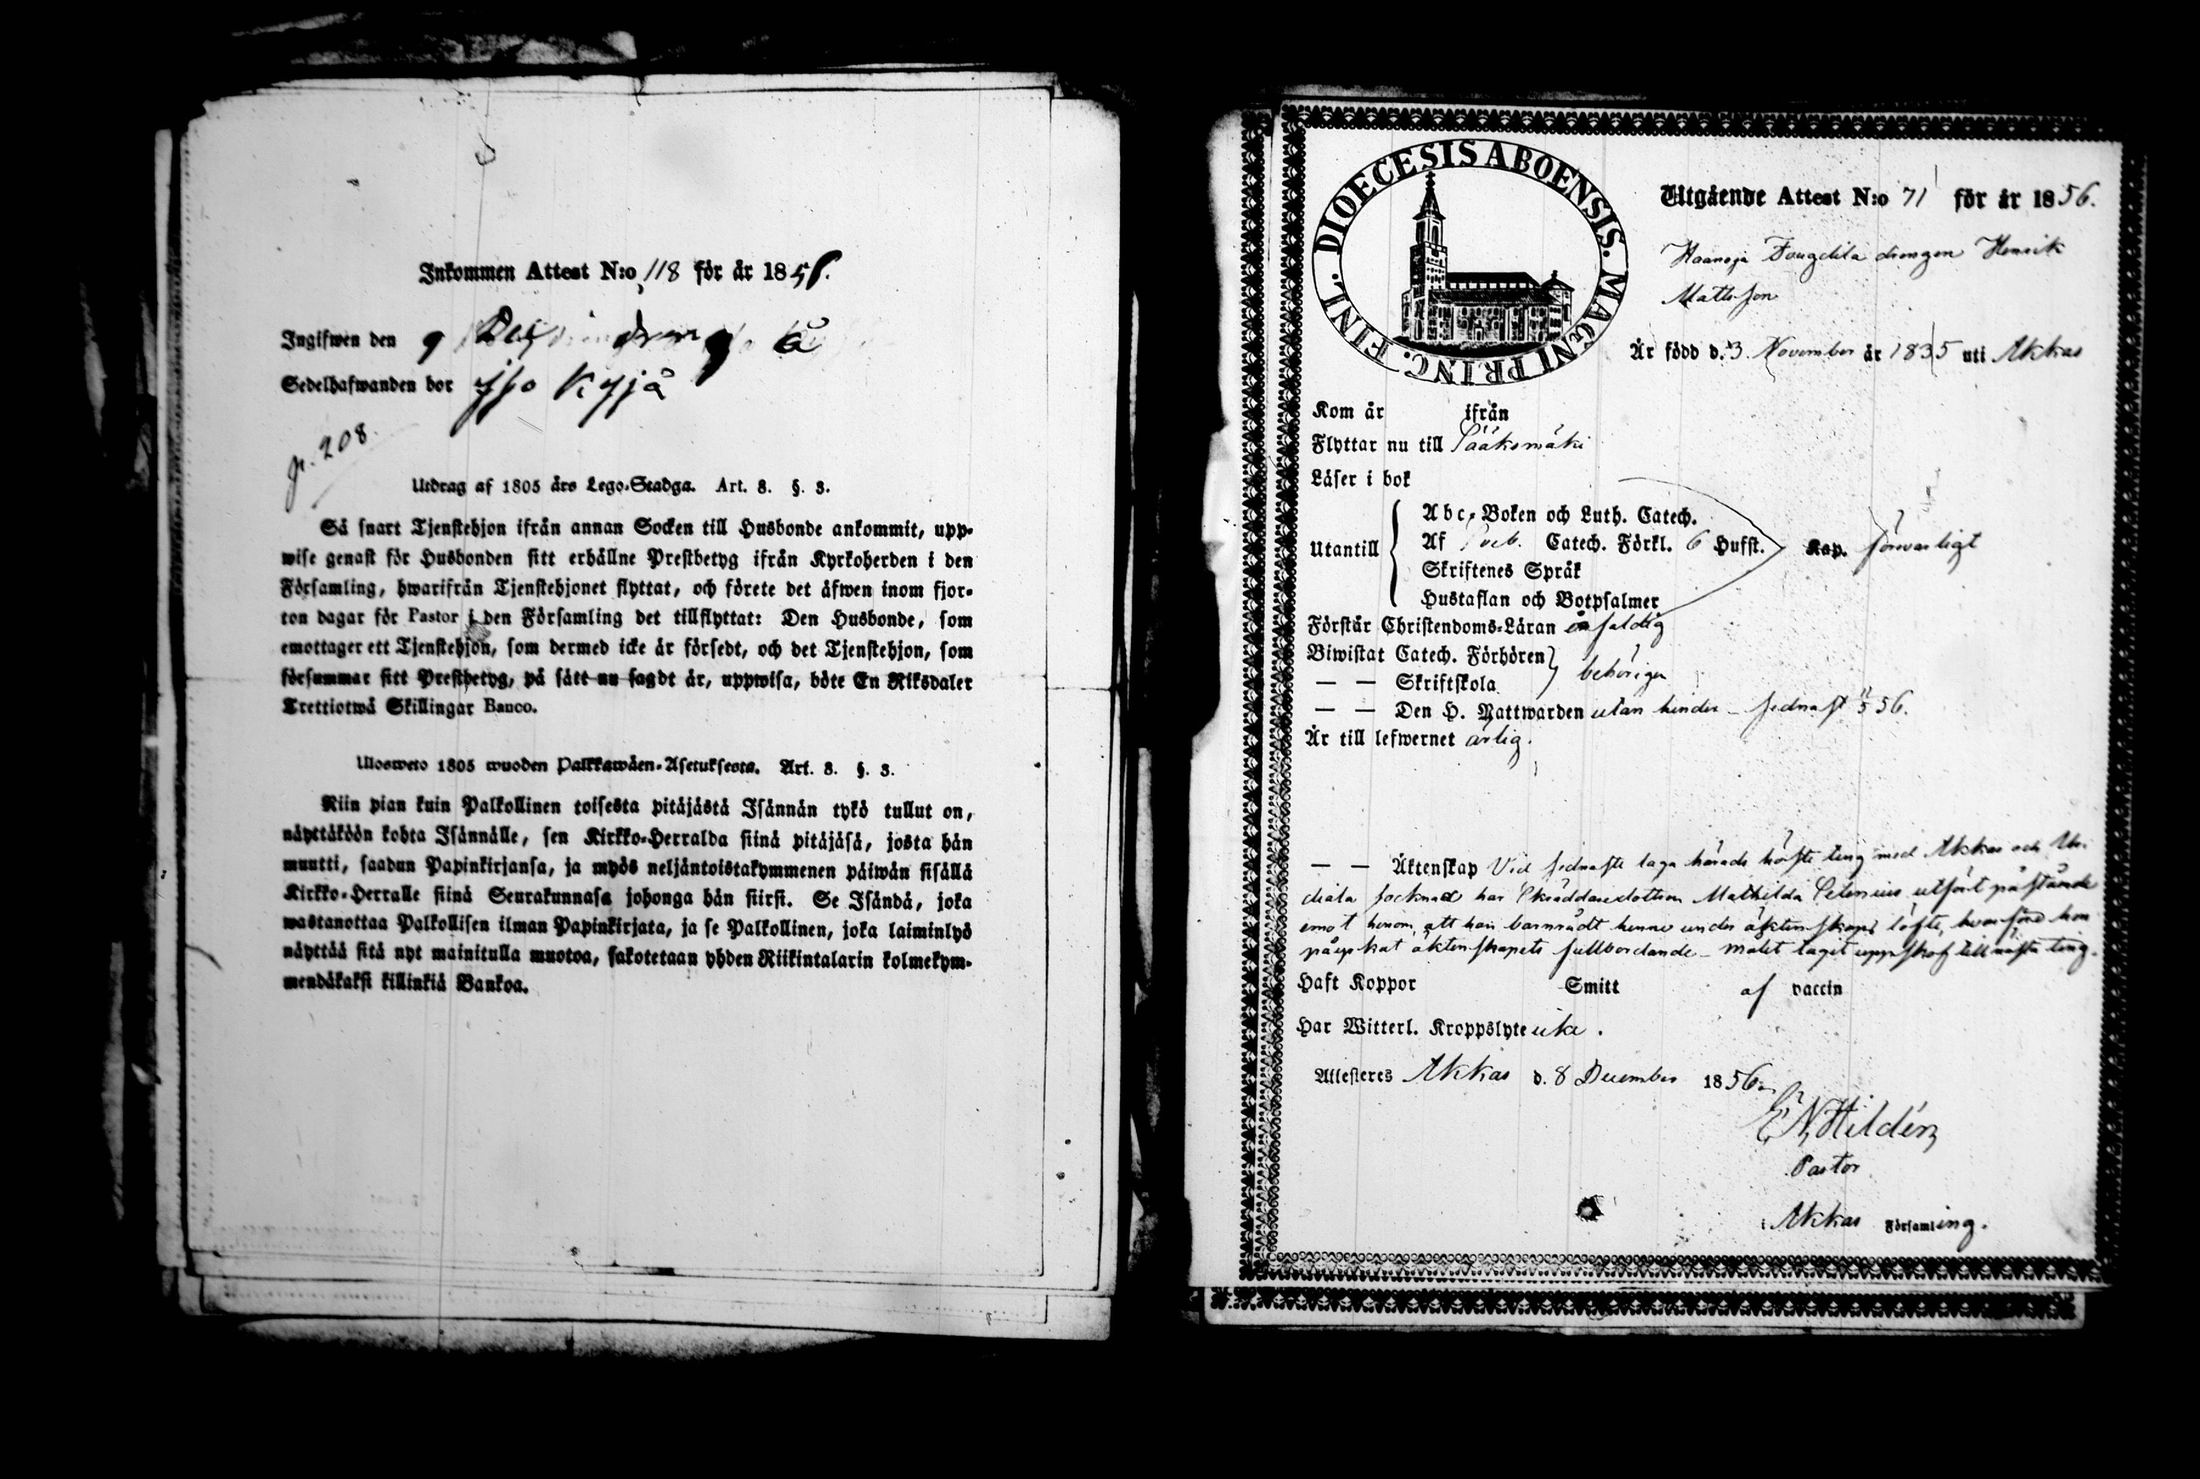 Inkommen Attest N:o 118 för år 1856.
Ingifwen den 9
Sedelhafwanden bor
p. 208
Utdrag af 1805 års Lego-Stadga. Art. 8. §. 3.
Så snart Tjenstehjon ifrån annan Socken till Husbonde ankommit, upp-
wise genast för Husbonden sitt erhållne Prestbetyg ifrån Kyrkoherden i den
Församling, hwarifrån Tjenstehjonet flyttat, och förete det äfwen inom fjor-
ton dagar för Pastor i den Församling det tillflyttat: Den Husbonde, som
emottager ett Tjenstehjon, som dermed icke är försedt, och det Tjenstehjon, som
försummar sitt Prestbetyg, på sätt nu sagdt är, uppwisa, böte En Riksdaler
Trettiotwå Skillingar Banco.
Ulosweto 1805 wuoden Palkkawäen-Asetuksesta. Art. 8. §. 3.
Niin pian kuin Palkollinen toisesta pitäjästä Isännän tykö tullut on,
näyttäköön kohta Isännälle, sen Kirkko-Herralda siinä pitäjäsä, josta hän
muutti, saadun Papinkirjansa, ja myös neljäntoistakymmenen päiwän sisällä
Kirkko-Herralle siinä Seurakunnasa johonga hän siirsi. Se Isändä, joka
wastanottaa Palkollisen ilman Papinkirjata, ja se Palkollinen, joka laiminlyö
näyttää sitä nyt mainitulla muotoa, sakotetaan yhden Riikintalarin kolmekym-
mendäkaksi killinkiä Bankoa.
DIOECESIS ABOENSIS. MAGNI PRINC. FINL.
Utgående Attest N:o 71 för år 1856.
Haanoja drengen Henrik
Mattsson
Är född d. 3 November år 1835 uti Akkas
Kom år ifrån
Flyttar nu till Sääksmäki
Läser i bok
Utantill
Abc-Boken och Luth. Catech.
Af Catech. Förkl. 6 Hufst. Kap. försvarligt
Skriftenes Språk
Hustaflan och Botpsalmer
Förstår Christendoms-Läran enfaldig
Biwistat Catech. Förhören
— — Skriftskola behörigen
— — Den H. Nattwarden utan hinder - sednast 11/5 56.
Är till lefwernet ärlig.
— — Äktenskap Vid sednaste laga härads höste ting med Akkas och Ur-
diala socknar har Skräddaredottren Mathilda utfört påstående
emot honom, att han barnrådt henne under äktenskaps löfte, hvarföre hon
påyrkat äktenskapets fullbordande - målet taget uppskof till nästa ting.
Haft Koppor Smitt af vaccin
Har Witterl. Kroppslyte icke.
Attesteres Akkas d. 8 December 1856.
E N Hildén
Pastor
i Akkas Församling.